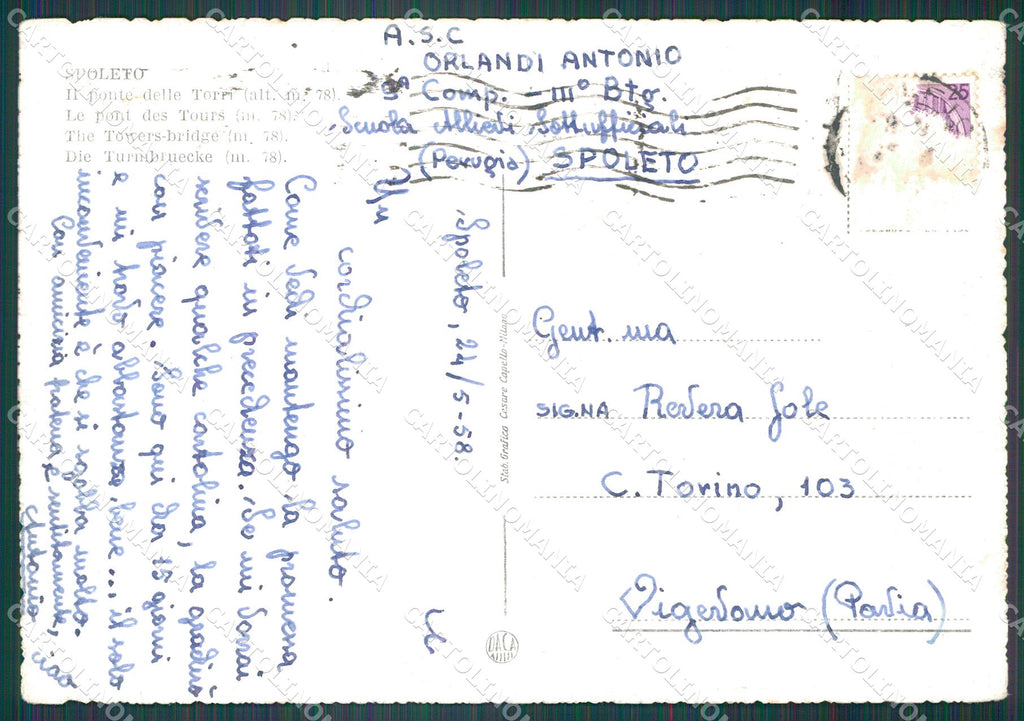 A.S.C
ORLANDI ANTONIO
9ª Comp. - IIIº Btg.
Scuola Allievi Sottufficiali
(Perugia) SPOLETO
SPOLETO
Il ponte delle Torri (alt. m. 78).
Le pont des Tours (m. 78).
The Towers-bridge (m. 78).
Die Turmbruecke (m. 78).
25
Spoleto, 24/5-58.
Un
cordialissimo saluto.
Come vedi mantengo la promessa
fattati in precedenza. Se mi vorrai
scrivere qualche cartolina, la gradirò
con piacere. Sono qui da 15 giorni
e mi trovo abbastanza bene..., il solo
inconveniente è che si sgobba molto.
Con amicizia fraterna e sentitamente, ciao
Antonio
Gent.ma
SIG.NA Revera Jole
C. Torino, 103
Vigevano (Pavia)
Stab. Grafico Cesare Capello-Milano
DACA
CARTOLINOMANIA